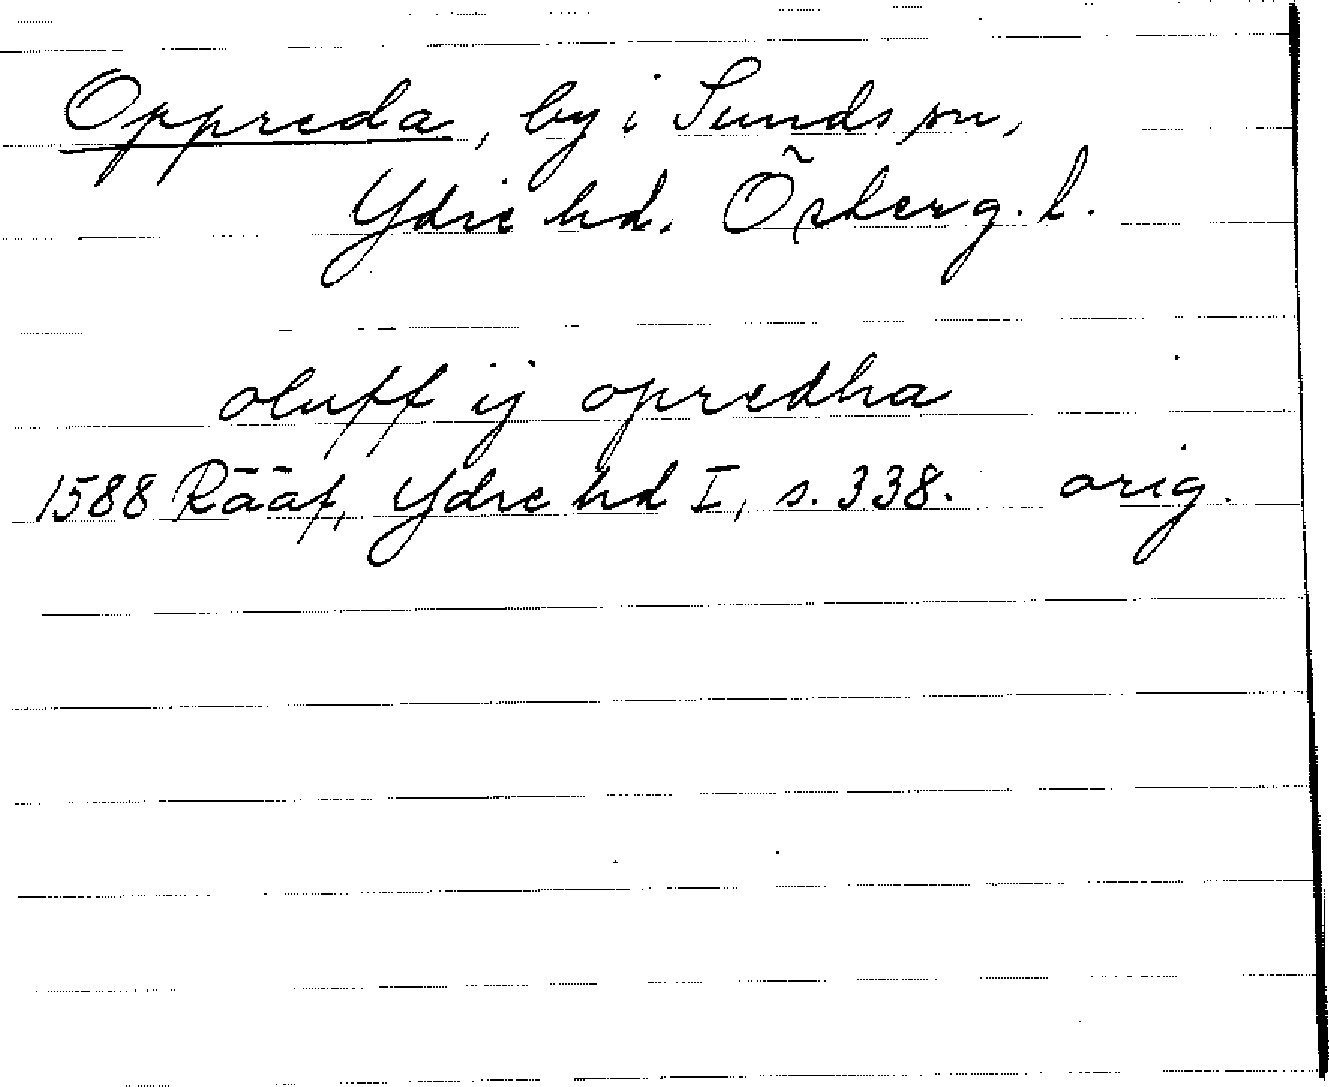 Oppreda, by i Sunds sn,
Ydre hd. Östergl.
oluff ij opredha
1588 Rääf, Ydre hd I, s. 338. orig.